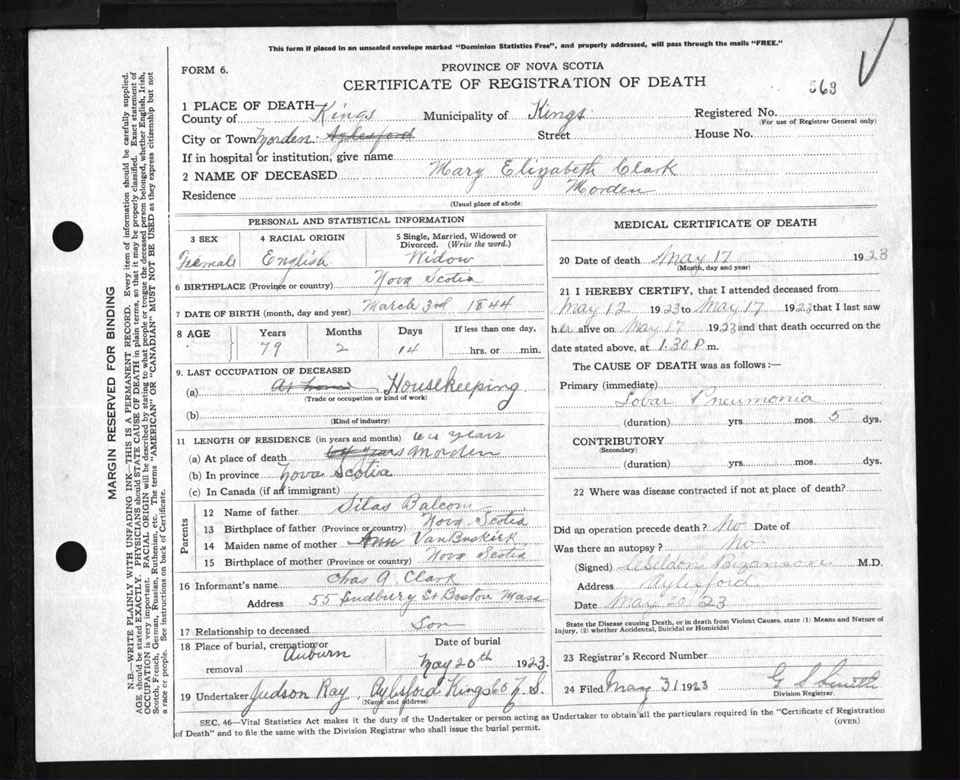 This form if placed in an unsealed envelope marked "Dominion Statistics Free", and properly addressed, will pass through the mails "FREE."
FORM 6.
PROVINCE OF NOVA SCOTIA
CERTIFICATE OF REGISTRATION OF DEATH
563
1 PLACE OF DEATH—
County of Kings Municipality of Kings Registered No.
(For use of Registrar General only)
City or Town Morden Aylesford Street House No.
If in hospital or institution, give name
2 NAME OF DECEASED Mary Elizabeth Clark
Residence Morden
(Usual place of abode)
MARGIN RESERVED FOR BINDING
N.B.—WRITE PLAINLY WITH UNFADING INK—THIS IS A PERMANENT RECORD. Every item of information should be carefully supplied.
AGE should be stated EXACTLY. PHYSICIANS should STATE CAUSE OF DEATH in plain terms, so that it may be properly classified. Exact statement of
OCCUPATION is very important. RACIAL ORIGIN will be described by stating to what people or tongue the deceased person belonged, whether English, Irish,
Scotch, French, German, Russian, Ruthenian, etc. The terms "AMERICAN" OR "CANADIAN" MUST NOT BE USED as they express citizenship but not
a race or people. See instructions on back of Certificate.
PERSONAL AND STATISTICAL INFORMATION
3 SEX
Female
4 RACIAL ORIGIN
English
5 Single, Married, Widowed or
Divorced. (Write the word.)
Widow
6 BIRTHPLACE (Province or country) Nova Scotia
7 DATE OF BIRTH (month, day and year) March 3rd 1844
8 AGE Years Months Days If less than one day,
79 2 14 hrs. or min.
9. LAST OCCUPATION OF DECEASED
(a) At home Housekeeping
(Trade or occupation or kind of work)
(b)
(Kind of industry)
11 LENGTH OF RESIDENCE (in years and months) 64 years
(a) At place of death 64 years Morden
(b) In province Nova Scotia
(c) In Canada (if an immigrant)
Parents
12 Name of father Silas Balcom
13 Birthplace of father (Province or country) Nova Scotia
14 Maiden name of mother Ann VanBuskirk
15 Birthplace of mother (Province or country) Nova Scotia
16 Informant's name Chas A. Clark
Address 55 Sudbury St Boston Mass
17 Relationship to deceased Son
18 Place of burial, cremation or
removal Auburn
Date of burial
May 20th 1923.
19 Undertaker Judson Ray, Aylesford Kings Co N.S.
(Name and address)
MEDICAL CERTIFICATE OF DEATH
20 Date of death May 17 1923
(Month, day and year)
21 I HEREBY CERTIFY, that I attended deceased from
May 12 1923 to May 17 1923 that I last saw
her alive on May 17 1923 and that death occurred on
date stated above, at 1.30 P.m.
The CAUSE OF DEATH was as follows:—
Primary (immediate)
Lobar Pneumonia
(duration) yrs. mos. 5 dys.
CONTRIBUTORY
(Secondary)
(duration) yrs. mos. dys.
22 Where was disease contracted if not at place of death?
Did an operation precede death? No Date of
Was there an autopsy? No
(Signed) M.D.
Address Aylesford
Date May 20 '23
State the Disease causing Death, or in death from Violent Causes, state (1) Means and Nature of
Injury, (2) whether Accidental, Suicidal or Homicidal
23 Registrar's Record Number
24 Filed May 31 1923 G S Smith
Division Registrar.
SEC. 46—Vital Statistics Act makes it the duty of the Undertaker or person acting as Undertaker to obtain all the particulars required in the "Certificate of Registration
of Death" and to file the same with the Division Registrar who shall issue the burial permit.
(OVER)